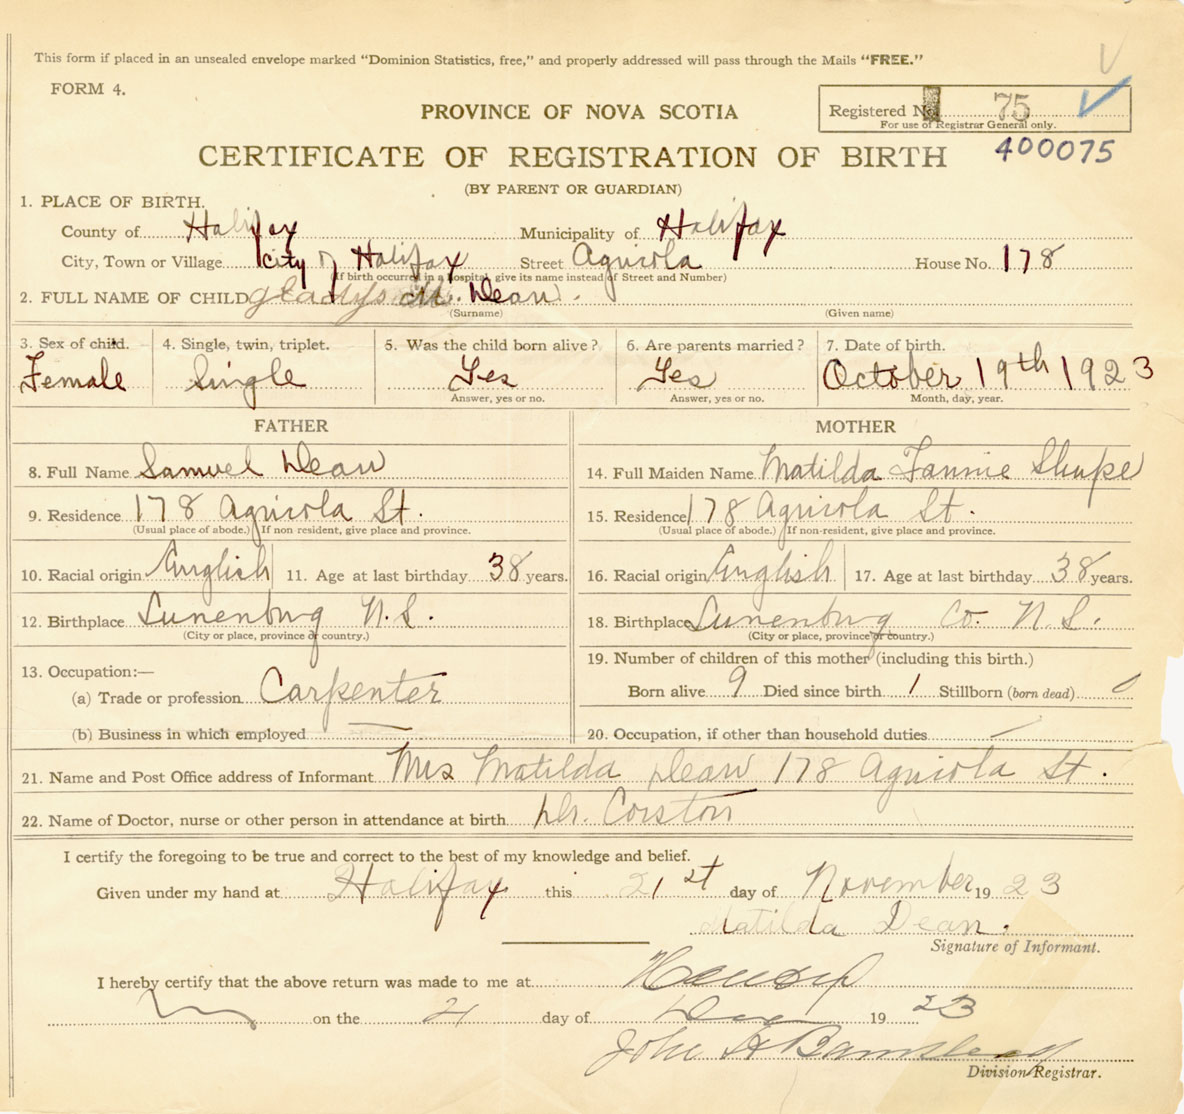 This form if placed in an unsealed envelope marked "Dominion Statistics, free," and properly addressed will pass through the Mails "FREE."
FORM 4.
Registered No. 75
For use of Registrar General only.
PROVINCE OF NOVA SCOTIA
CERTIFICATE OF REGISTRATION OF BIRTH
400075
(BY PARENT OR GUARDIAN)
1. PLACE OF BIRTH.
County of Halifax Municipality of Halifax
City, Town or Village City of Halifax Street Agricola House No. 178
(If birth occurred in a hospital, give its name instead of Street and Number)
2. FULL NAME OF CHILD Gladys M. Dean.
(Surname) (Given name)
3. Sex of child. 4. Single, twin, triplet. 5. Was the child born alive? 6. Are parents married? 7. Date of birth.
Female Single Yes Yes October 19th 1923
Answer, yes or no. Answer, yes or no. Month, day, year.
FATHER MOTHER
8. Full Name Samuel Dean 14. Full Maiden Name Matilda Fannie Shupe
9. Residence 178 Agricola St. 15. Residence 178 Agricola St.
(Usual place of abode.) If non-resident, give place and province. (Usual place of abode.) If non-resident, give place and province.
10. Racial origin English 11. Age at last birthday 38 years. 16. Racial origin English 17. Age at last birthday 38 years.
12. Birthplace Lunenburg N.S. 18. Birthplace Lunenburg Co. N.S.
(City or place, province or country.) (City or place, province or country.)
13. Occupation:— 19. Number of children of this mother (including this birth.)
(a) Trade or profession Carpenter Born alive 9 Died since birth 1 Stillborn (born dead) 0
(b) Business in which employed — 20. Occupation, if other than household duties —
21. Name and Post Office address of Informant Mrs Matilda Dean 178 Agricola St.
22. Name of Doctor, nurse or other person in attendance at birth Dr. Corston
I certify the foregoing to be true and correct to the best of my knowledge and belief.
Given under my hand at Halifax this 21st day of November 1923
Matilda Dean.
Signature of Informant.
I hereby certify that the above return was made to me at
on the 21 day of 1923
John A
Division Registrar.